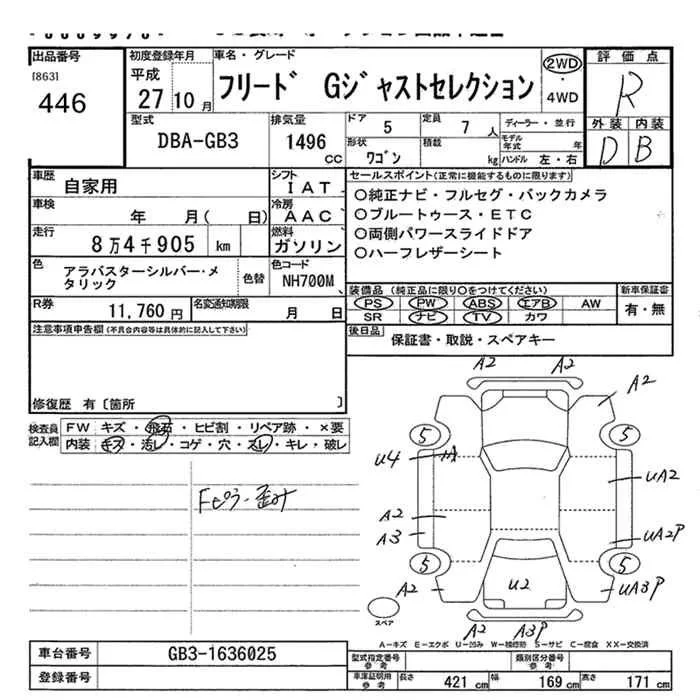 出品番号
[863]
446
初度登録年月
平成
27年10月
車名・グレード
フリード Gジャストセレクション
2WD
・
4WD
評価点
R
外装 内装
D B
型式
DBA-GB3
排気量
1496
CC
ドア
5
定員
7人
形状
ワゴン
積載
kg
ディーラー・並行
モデル
年式 年
ハンドル 左・右
車歴
自家用
シフト
IAT
車検
年 月( 日)
冷房
AAC
走行
8万4千905 km
燃料
ガソリン
色
アラバスターシルバー・メ
タリック
色替
色コード
NH700M
R券
11,760円
名変通知期限
月 日
セールスポイント(正常に機能するものに限ります)
○純正ナビ・フルセグ・バックカメラ
○ブルートゥース・ETC
○両側パワースライドドア
○ハーフレザーシート
装備品 (純正品に限り○をつけてください)
PS PW ABS エアB AW
SR ナビ TV カワ
新車保証書
有・無
後日品
保証書・取説・スペアキー
注意事項申告欄(不具合内容等は具体的に記入して下さい)
修復歴 有〔箇所 〕
検査員
記入欄
FW キズ・飛石・ヒビ割・リペア跡・×要
内装 キズ・汚レ・コゲ・穴・スレ・キレ・破レ
Fピラー歪み
A2 A2
A2
5 5
U4
UA2
A2
A3
UA2P
5 5
A2
U2
UA3P
スペア
A2 A3P
A-キズ E-エクボ U-凹み W-補修跡 S-サビ C-腐食 XX-交換済
車台番号
GB3-1636025
登録番号
型式指定番号
参考
類別区分番号
参考
車庫証明用
参考
長さ 421cm
幅 169cm
高さ 171cm